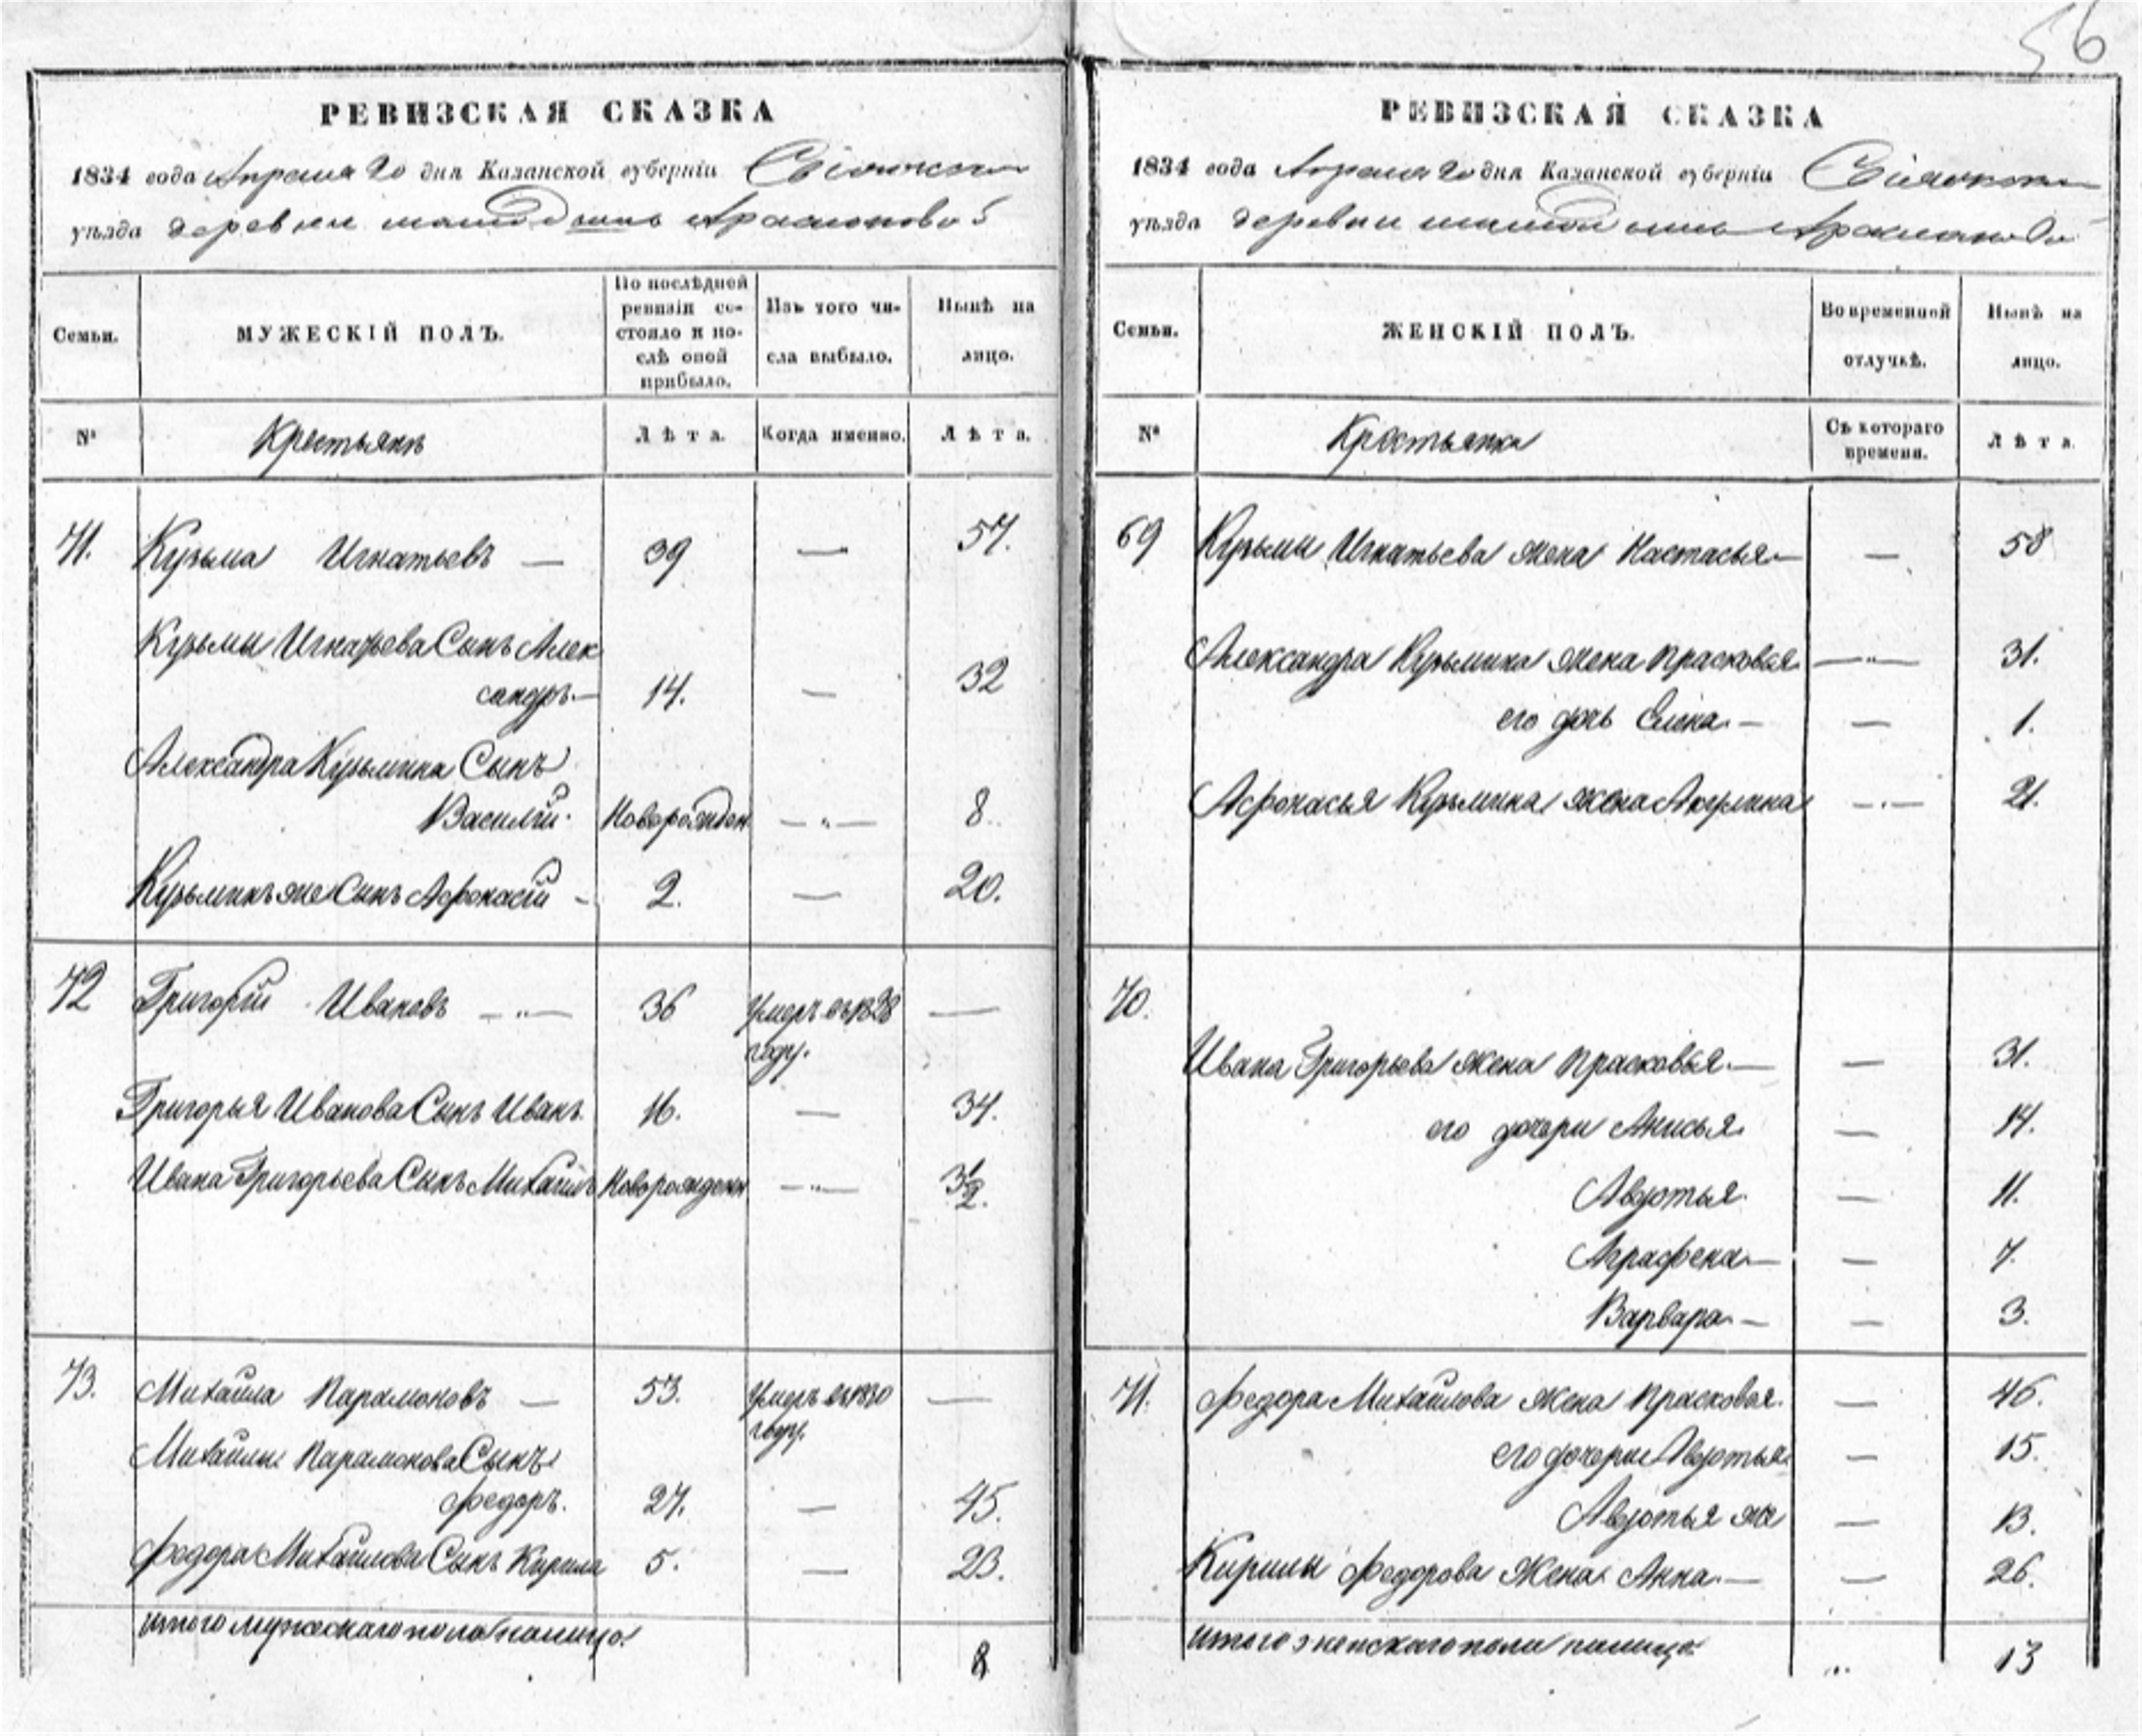 56
РЕВИЗСКАЯ СКАЗКА
1834 года Апреля 20 дня Казанской губерніи
уѣзда деревни
Семьи.
МУЖЕСКІЙ ПОЛЪ.
По послѣдней ревизіи состояло и послѣ оной прибыло.
Изъ того числа выбыло.
Нынѣ на лицо.
№
Крестьянъ
Лѣта.
Когда именно.
Лѣта.
71. Кузьма Игнатьевъ — 39 — 57.
Кузьмы Игнатьева Сынъ Алек
сандръ — 14. — 32
Александра Кузьмина Сынъ
Василій. Новорожден — " — 8.
Кузьминъ же Сынъ Афонасій - 2. — 20.
72 Григорій Ивановъ — " — 36 Умеръ въ 1828 —
году.
Григорья Иванова Сынъ Иванъ. 16. — 34.
Ивана Григорьева Сынъ Михайлъ Новорожденн — " — 3 1/2.
73. Михайла Парамоновъ — 53. Умеръ въ 1830 —
году.
Михайлы Парамонова Сынъ
Федоръ. 27. — 45.
Федора Михайлова Сынъ Кирила 5. — 23.
итого мужескаго пола налицо. 8
РЕВИЗСКАЯ СКАЗКА
1834 года Апреля 20 дня Казанской губерніи
уѣзда деревни
Семьи.
ЖЕНСКІЙ ПОЛЪ.
Во временной отлучкѣ.
Нынѣ на лицо.
№
Крестьянка
Съ котораго времени.
Лѣта
69 Кузьмы Игнатьева жена Настасья — — 58
Александра Кузьмина жена Прасковья — " — 31.
его дочь Елена. — — 1.
Афонасья Кузьмина жена Акулина — " — 21.
70.
Ивана Григорьева жена Прасковья. — — 31.
его дочери Анисья. — 14.
Авдотья. — 11.
Аграфена — — 7.
Варвара. — — 3.
71. Федора Михайлова жена Прасковья. — 46.
его дочери Авдотья — 15.
Авдотья же — 13.
Кирилы Федорова Жена Анна. — — 26.
итого женскаго пола налицо " 13